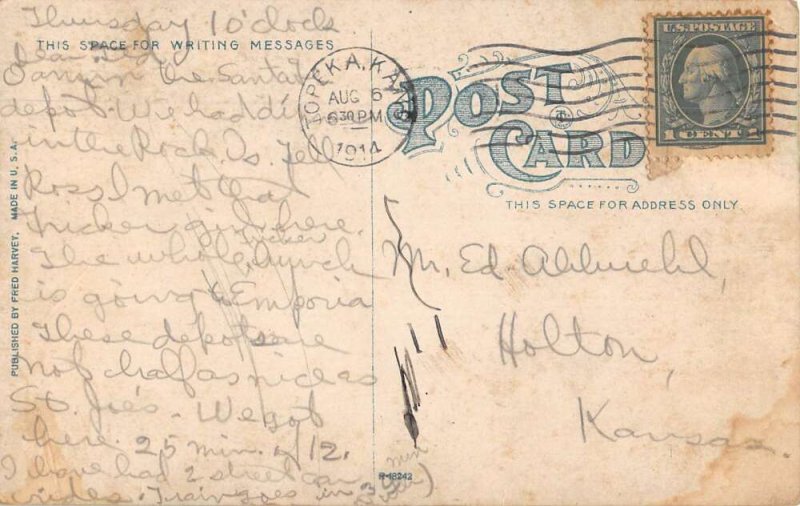 Thursday 10'clock
THIS SPACE FOR WRITING MESSAGES
Dear Ed,
am in the Santa
depot. We had di
in the Rock Is. Tell
Ross I met that
Tucker girl here.
Tucker
The whole bunch
is going to Emporia
These depots are
not half as nice as
St. Joe's - We got
here. 25 min. of 12.
I have had 2 street car
rides. Train goes in 3 min
PUBLISHED BY FRED HARVEY. MADE IN U.S.A.
TOPEKA, KANS.
AUG 6
6 30 PM
1914
U.S. POSTAGE
1 CENT 1
POST
CARD
THIS SPACE FOR ADDRESS ONLY
Mr. Ed
Holton,
Kansas.
R-18242